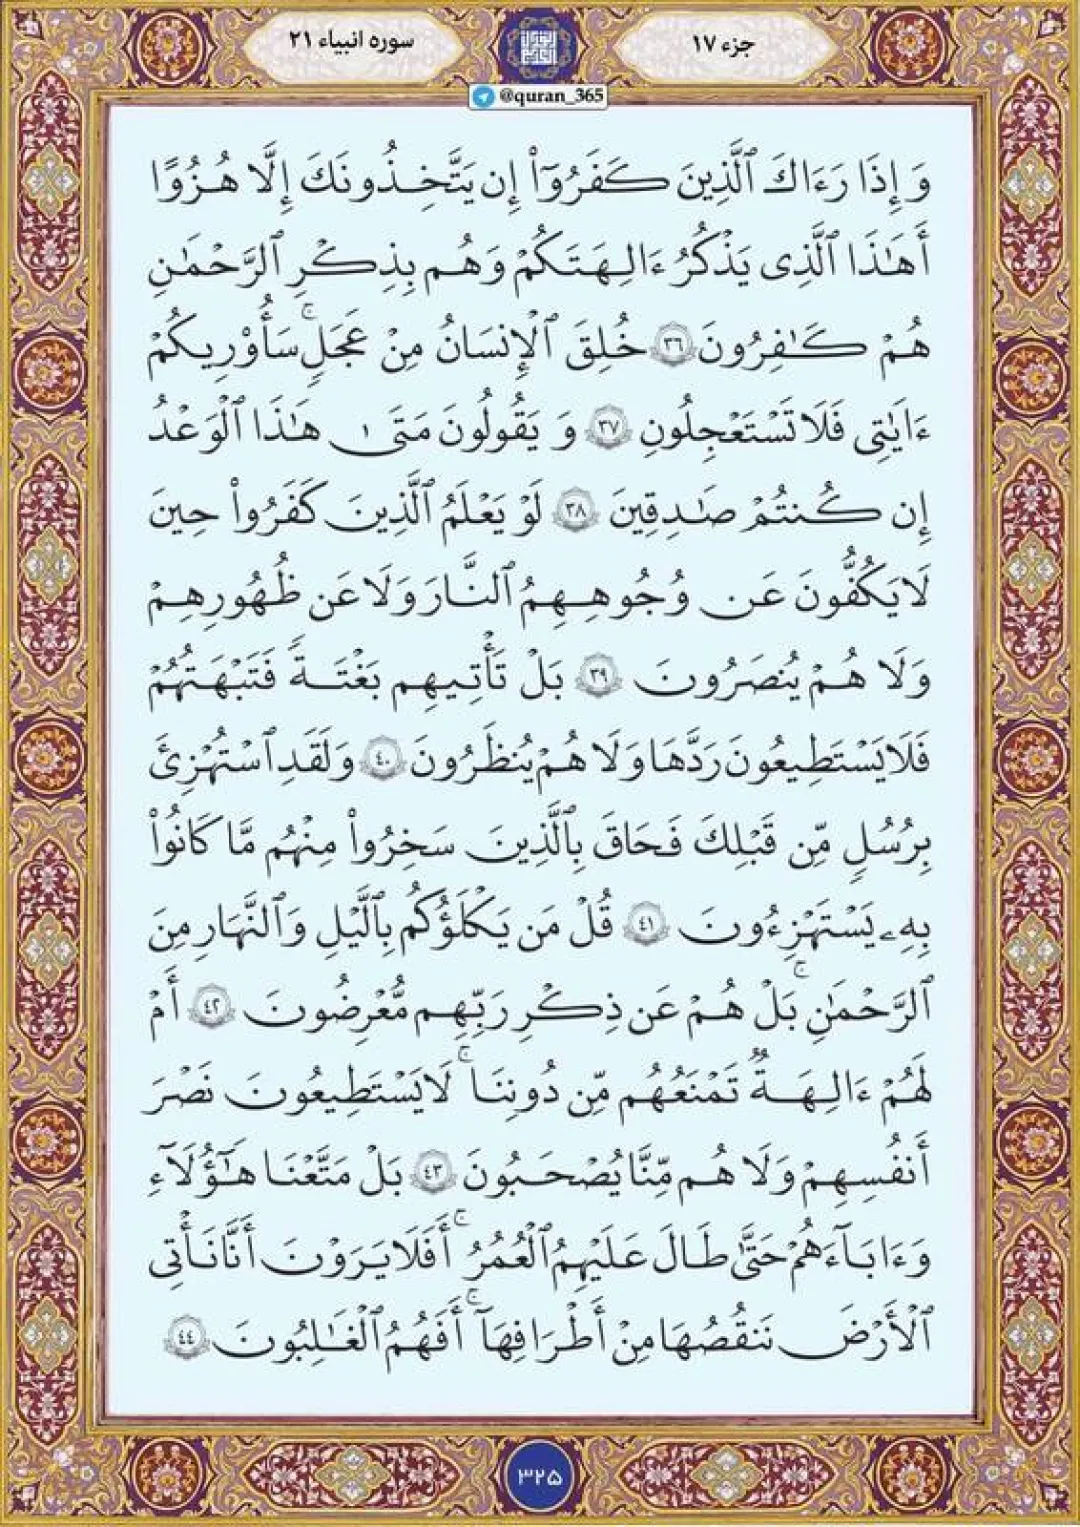 جزء ۱۷
سوره انبیاء ۲۱
@quran_365
وَ إِذَا رَءَاكَ ٱلَّذِينَ كَفَرُوٓا۟ إِن يَتَّخِذُونَكَ إِلَّا هُزُوًا
أَهَٰذَا ٱلَّذِى يَذْكُرُ ءَالِهَتَكُمْ وَهُم بِذِكْرِ ٱلرَّحْمَٰنِ
هُمْ كَٰفِرُونَ ٣٦ خُلِقَ ٱلْإِنسَانُ مِنْ عَجَلٍۚ سَأُو۟رِيكُمْ
ءَايَٰتِى فَلَا تَسْتَعْجِلُونِ ٣٧ وَ يَقُولُونَ مَتَىٰ هَٰذَا ٱلْوَعْدُ
إِن كُنتُمْ صَٰدِقِينَ ٣٨ لَوْ يَعْلَمُ ٱلَّذِينَ كَفَرُوا۟ حِينَ
لَا يَكُفُّونَ عَن وُجُوهِهِمُ ٱلنَّارَ وَلَا عَن ظُهُورِهِمْ
وَلَا هُمْ يُنصَرُونَ ٣٩ بَلْ تَأْتِيهِم بَغْتَةً فَتَبْهَتُهُمْ
فَلَا يَسْتَطِيعُونَ رَدَّهَا وَلَا هُمْ يُنظَرُونَ ٤٠ وَلَقَدِ ٱسْتُهْزِئَ
بِرُسُلٍ مِّن قَبْلِكَ فَحَاقَ بِٱلَّذِينَ سَخِرُوا۟ مِنْهُم مَّا كَانُوا۟
بِهِۦ يَسْتَهْزِءُونَ ٤١ قُلْ مَن يَكْلَؤُكُم بِٱلَّيْلِ وَٱلنَّهَارِ مِنَ
ٱلرَّحْمَٰنِۚ بَلْ هُمْ عَن ذِكْرِ رَبِّهِم مُّعْرِضُونَ ٤٢ أَمْ
لَهُمْ ءَالِهَةٌ تَمْنَعُهُم مِّن دُونِنَاۚ لَا يَسْتَطِيعُونَ نَصْرَ
أَنفُسِهِمْ وَلَا هُم مِّنَّا يُصْحَبُونَ ٤٣ بَلْ مَتَّعْنَا هَٰٓؤُلَآءِ
وَءَابَآءَهُمْ حَتَّىٰ طَالَ عَلَيْهِمُ ٱلْعُمُرُۚ أَفَلَا يَرَوْنَ أَنَّا نَأْتِى
ٱلْأَرْضَ نَنقُصُهَا مِنْ أَطْرَافِهَآۚ أَفَهُمُ ٱلْغَٰلِبُونَ ٤٤
۳۲۵